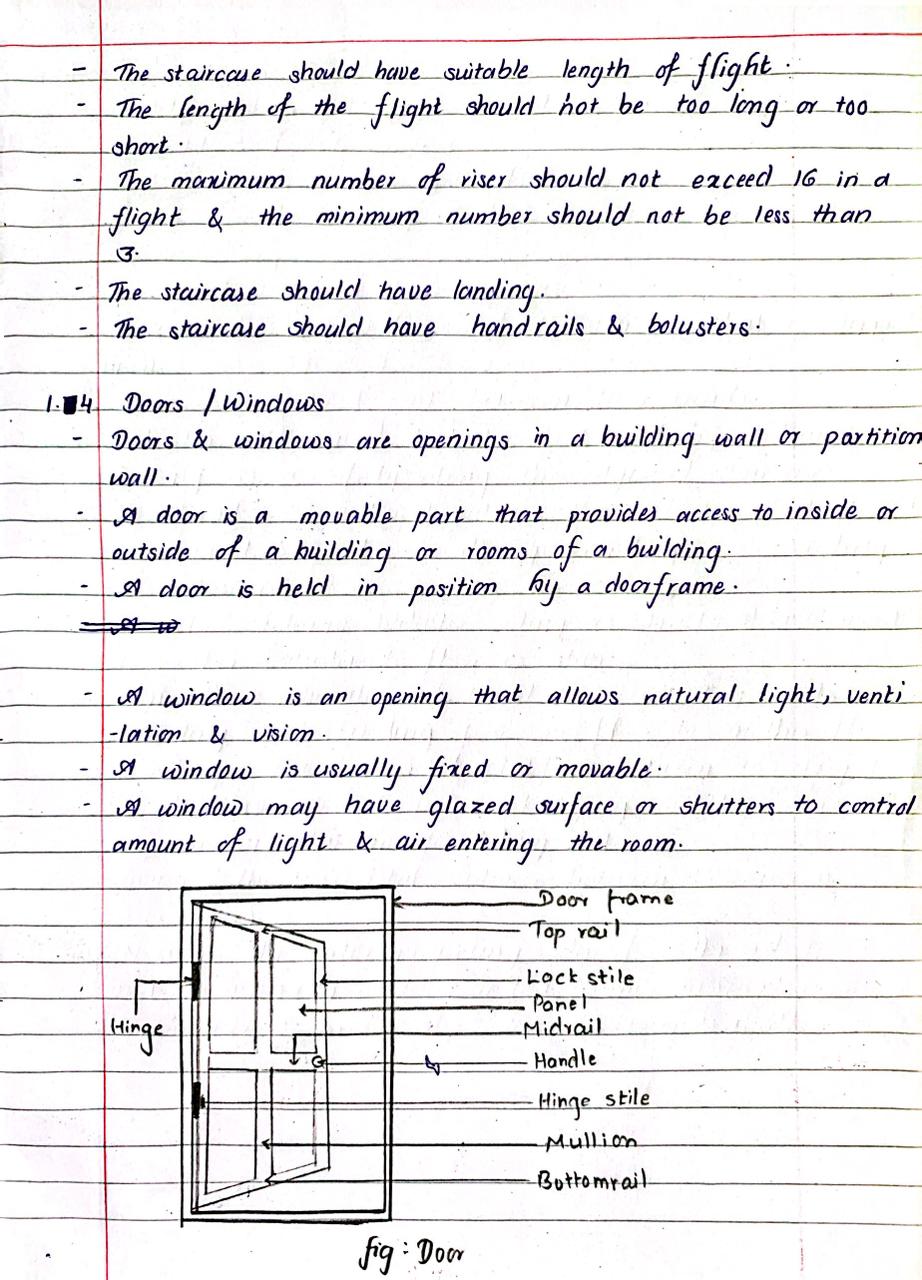 - The staircase should have suitable length of flight.
- The length of the flight should not be too long or too
short.
- The maximum number of riser should not exceed 16 in a
flight & the minimum number should not be less than
3.
- The staircase should have landing.
- The staircase should have handrails & bolusters.
1.4 Doors / Windows
- Doors & windows are openings in a building wall or partition
wall.
- A door is a movable part that provides access to inside or
outside of a building or rooms of a building.
- A door is held in position by a doorframe.
- A window is an opening that allows natural light, venti
-lation & vision.
- A window is usually fixed or movable.
- A window may have glazed surface or shutters to control
amount of light & air entering the room.
Door frame
Top rail
Lock stile
Panel
Midrail
Hinge
Handle
Hinge stile
Mullion
Bottomrail
fig : Door